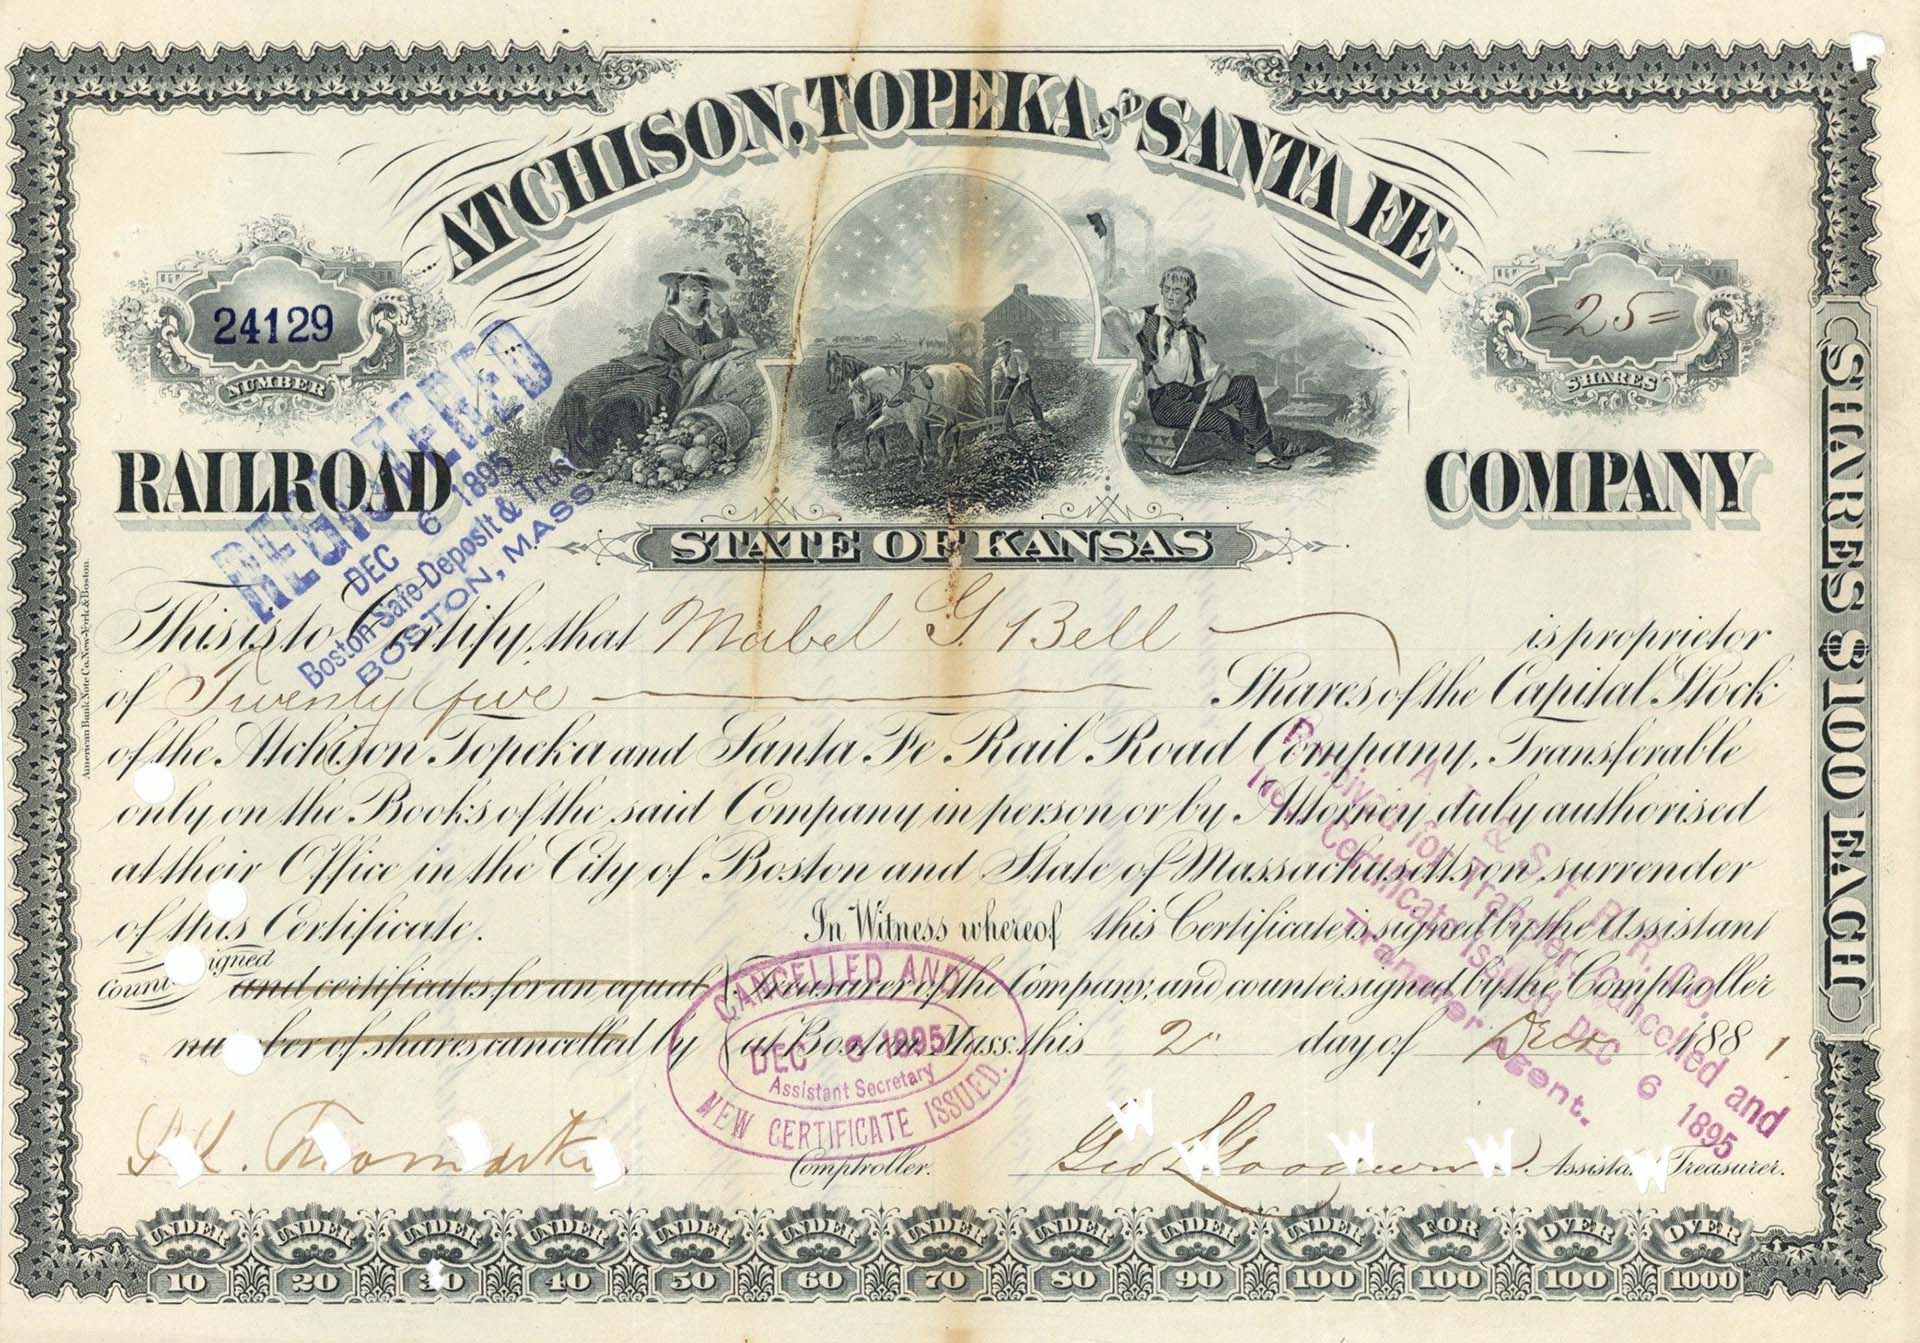 ATCHISON, TOPEKA AND SANTA FE
24129
NUMBER
=25=
SHARES
RAILROAD COMPANY
STATE OF KANSAS
REGISTERED
DEC 6 1895
Boston Safe-Deposit & Trust
BOSTON, MASS.
This is to Certify, that Mabel G. Bell is proprietor
of Twenty five Shares of the Capital Stock
of the Atchison Topeka and Santa Fe Rail Road Company, Transferable
only on the Books of the said Company in person or by Attorney duly authorised
at their Office in the City of Boston and State of Massachusetts on surrender
of this Certificate. In Witness whereof this Certificate is signed by the Assistant
Countersigned and certificates for an equal Treasurer of the Company, and countersigned by the Comptroller
number of shares cancelled by at Boston Mass. this 2 day of Decr 1881
CANCELLED AND
DEC 6 1895
Assistant Secretary
NEW CERTIFICATE ISSUED.
A. T. & S. F. R. R. CO.
Received for Transfer, Cancelled and
New Certificate Issued DEC 6 1895
Transfer Agent.
Comptroller.
Geo L Goodwin Assistant Treasurer.
UNDER 10
UNDER 20
UNDER 30
UNDER 40
UNDER 50
UNDER 60
UNDER 70
UNDER 80
UNDER 90
UNDER 100
FOR 100
OVER 100
OVER 1000
SHARES $100 EACH
American Bank Note Co. New-York & Boston.